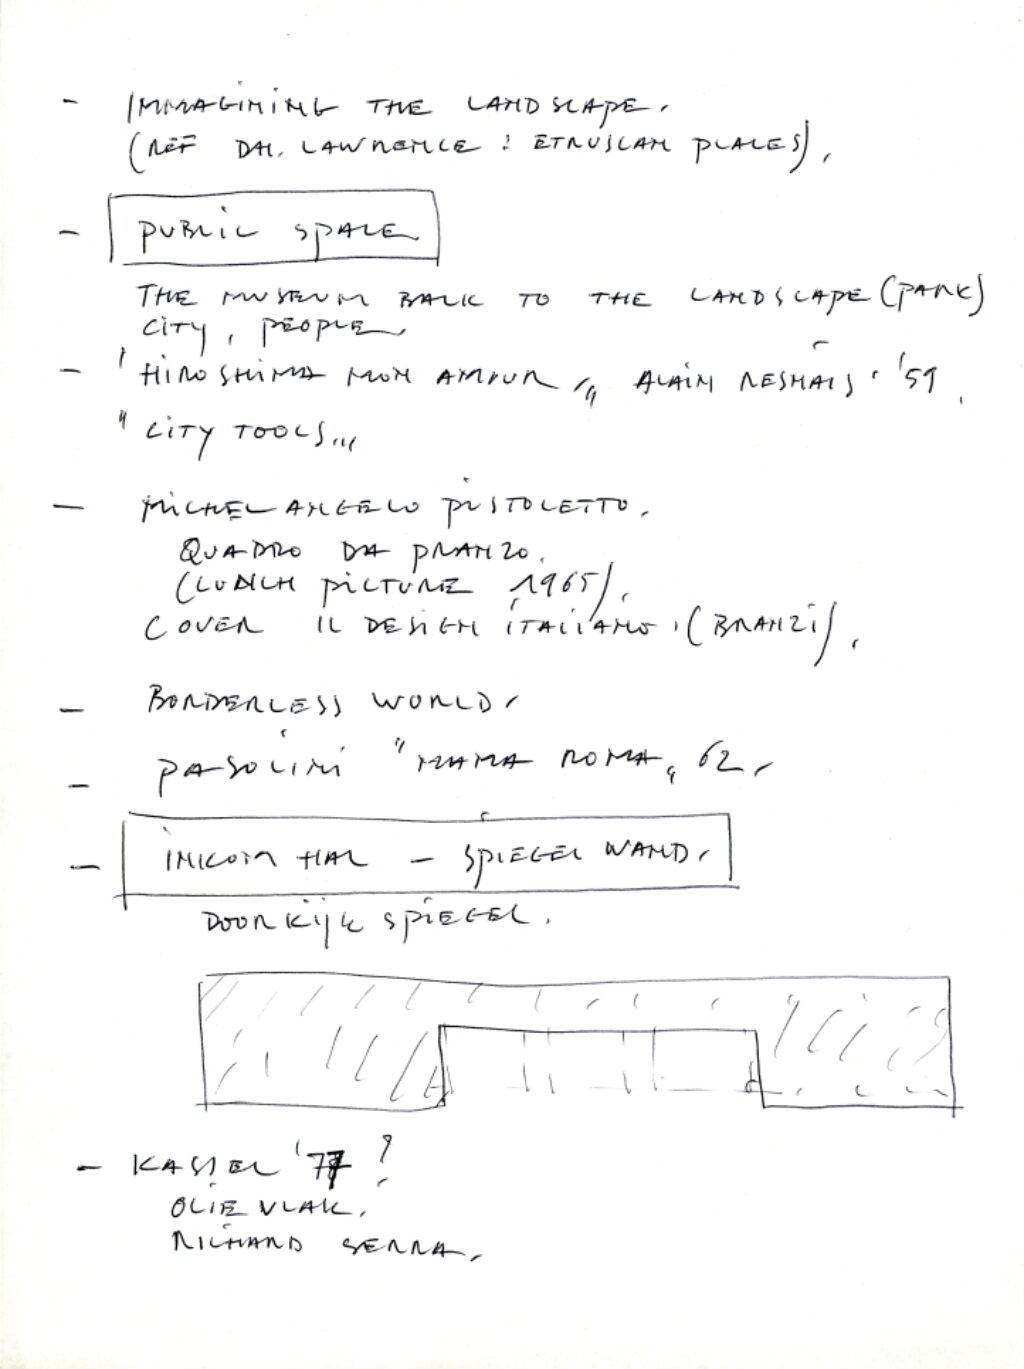 - IMMAGINING THE LANDSCAPE.
(REF DH. LAWRENCE : ETRUSCAN PLACES).
- PUBLIC SPACE
THE MUSEUM BACK TO THE LANDSCAPE (PARK)
CITY, PEOPLE
- 'HIROSHIMA MON AMOUR,, ALAIN RESNAIS. '59.
" CITY TOOLS,,,
- MICHELANGELO PISTOLETTO.
QUADRO DA PRANZO.
(LUNCH PICTURE 1965).
COVER IL DESIGN ITALIANO. (BRANZI).
- BORDERLESS WORLD.
- PASOLINI "MAMA ROMA,, 62.
- INKOM HAL - SPIEGEL WAND.
DOORKIJK SPIEGEL.
- KASSEL '77 ?
OLIE VLAK.
RICHARD SERRA.